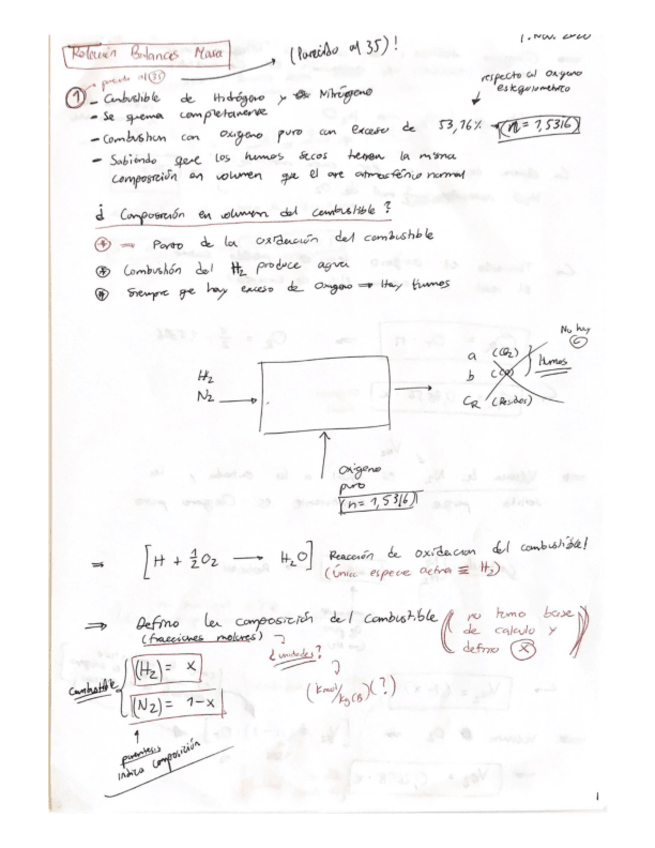 Relación Balances Masa
(Parecido al 35)!
1. Nov. 2020
parecido al (25)
respecto al oxígeno
estequiométrico
① - Combustible de Hidrógeno y Nitrógeno
- Se quema completamente
- Combustion con oxigeno puro con exceso de 53,16% → (n = 1,5316)
- Sabiendo que los humos secos tienen la misma
composición en volumen que el aire atmosférico normal
¿ Composición en volumen del combustible ?
* → Parto de la oxidación del combustible
* Combustión del H2 produce agua
* Siempre que hay exceso de oxigeno ⇒ Hay humos
No hay
C
a (CO2)
b (CO)
Humos
CR (Residuos)
H2
N2
Oxigeno
puro
(n = 1,5316)
= [H + 1/2 O2 → H2O] Reacción de oxidacion del combustible!
(Única especie activa ≡ H2)
⇒ Defino la composición del combustible
(fracciones molares)
(no tomo base
de calculo y
defino x)
¿unidades?
(kmol/kg(B)) (?)
Combustible
(H2) = x
(N2) = 1-x
parentesis
indica composición
1